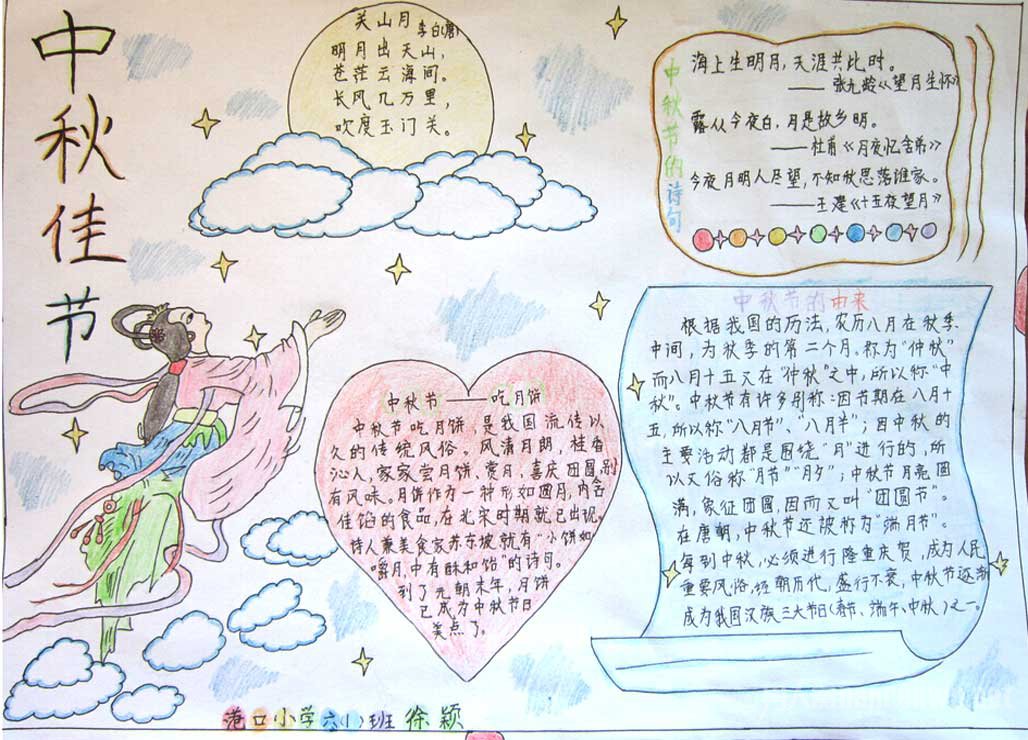 中秋佳节
关山月
李白(唐)
明月出天山，
苍茫云海间。
长风几万里，
吹度玉门关。
中秋节的诗句
海上生明月，天涯共比时。
——张九龄《望月生怀》
露从今夜白，月是故乡明。
——杜甫《月夜忆舍弟》
今夜月明人尽望，不知秋思落谁家。
——王建《十五夜望月》
中秋节的由来
根据我国的历法，农历八月在秋季
中间，为秋季的第二个月。称为“仲秋”
而八月十五又在“仲秋”之中，所以称“中
秋”。中秋节有许多别称：因节期在八月十
五，所以称“八月节”、“八月半”；因中秋的
主要活动都是围绕“月”进行的，所
以又俗称“月节”“月夕”；中秋节月亮圆
满，象征团圆，因而又叫“团圆节”。
在唐朝，中秋节还被称为“端月节”。
每到中秋，必须进行隆重庆贺，成为人民
重要风俗，经朝历代，盛行不衰，中秋节逐渐
成为我国汉族三大节日(春节、端午、中秋)之一。
中秋节——吃月饼
中秋节吃月饼，是我国流传以
久的传统风俗。风清月朗，桂香
沁人，家家尝月饼、赏月，喜庆团圆，别
有风味。月饼作为一种形如圆月，内含
佳馅的食品，在北宋时期就已出现。
诗人兼美食家苏东坡就有“小饼如
嚼月，中有酥和饴”的诗句。
到了元朝末年，月饼
已成为中秋节日
美点了。
港口小学六(1)班 徐颖